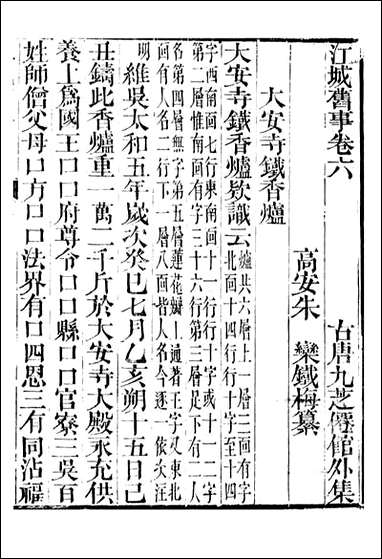 江城舊事卷六
古唐九芝僊館外集
高安朱　欒鐵梅纂
大安寺鐵香爐
大安寺鐵香爐欵識云
爐共六層上一層八面有字
北面十四行行十字或十二字
字西南面七行東南面十一行行十字至十四
第二層惟南面有字三十六行第三層足下有二人
名第四層無字弟五層蓮花瓣上通著王字又東北
角各人名二行下一層八面皆人名今逐一依次注
明
維吳太和五年歲次癸巳七月乙亥朔十五日己
丑鑄此香爐重一萬二千斤於大安寺大殿永充供
養上爲國王口口府尊令口口縣口口官寮三吳百
姓師僧父母口方口口法界有口四恩三有同沾福